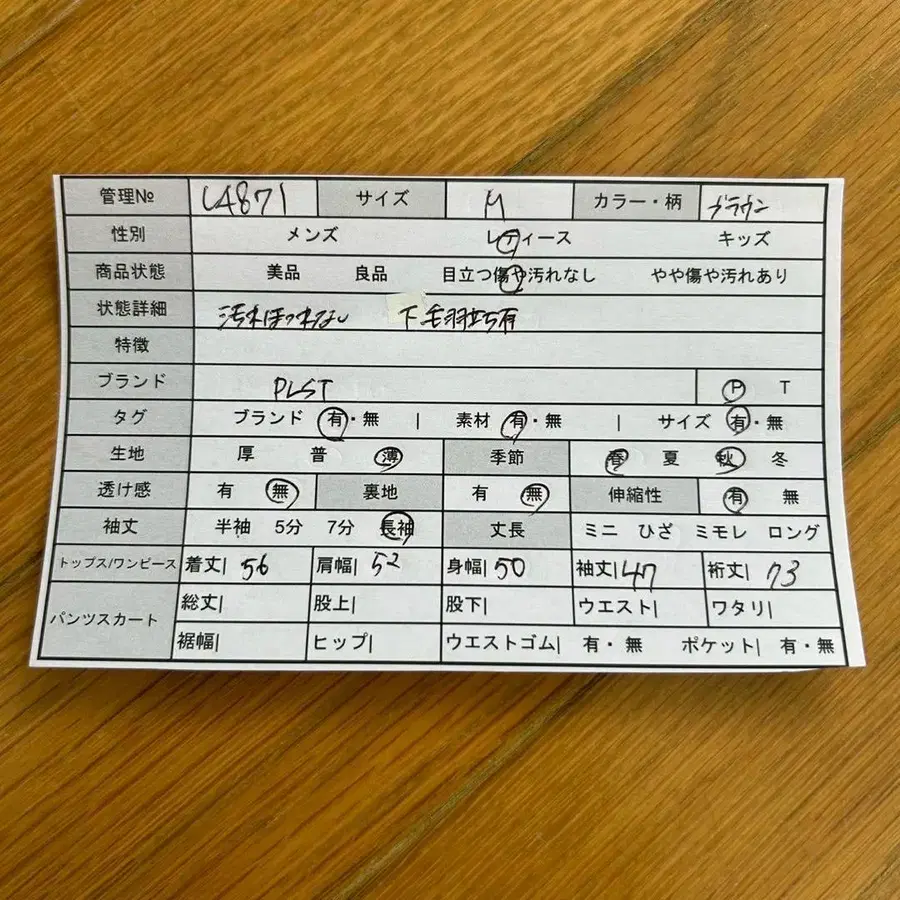 管理№ L4871 サイズ M カラー・柄 ブラウン
性別 メンズ レディース キッズ
商品状態 美品 良品 目立つ傷や汚れなし やや傷や汚れあり
状態詳細 汚れほつれなし 下毛羽立ち有
特徴
ブランド PLST P T
タグ ブランド 有・無 | 素材 有・無 | サイズ 有・無
生地 厚 普 薄 季節 春 夏 秋 冬
透け感 有 無 裏地 有 無 伸縮性 有 無
袖丈 半袖 5分 7分 長袖 丈長 ミニ ひざ ミモレ ロング
トップス/ワンピース 着丈| 56 肩幅| 52 身幅| 50 袖丈| 47 裄丈| 73
パンツスカート 総丈| 股上| 股下| ウエスト| ワタリ|
裾幅| ヒップ| ウエストゴム| 有・無 ポケット| 有・無